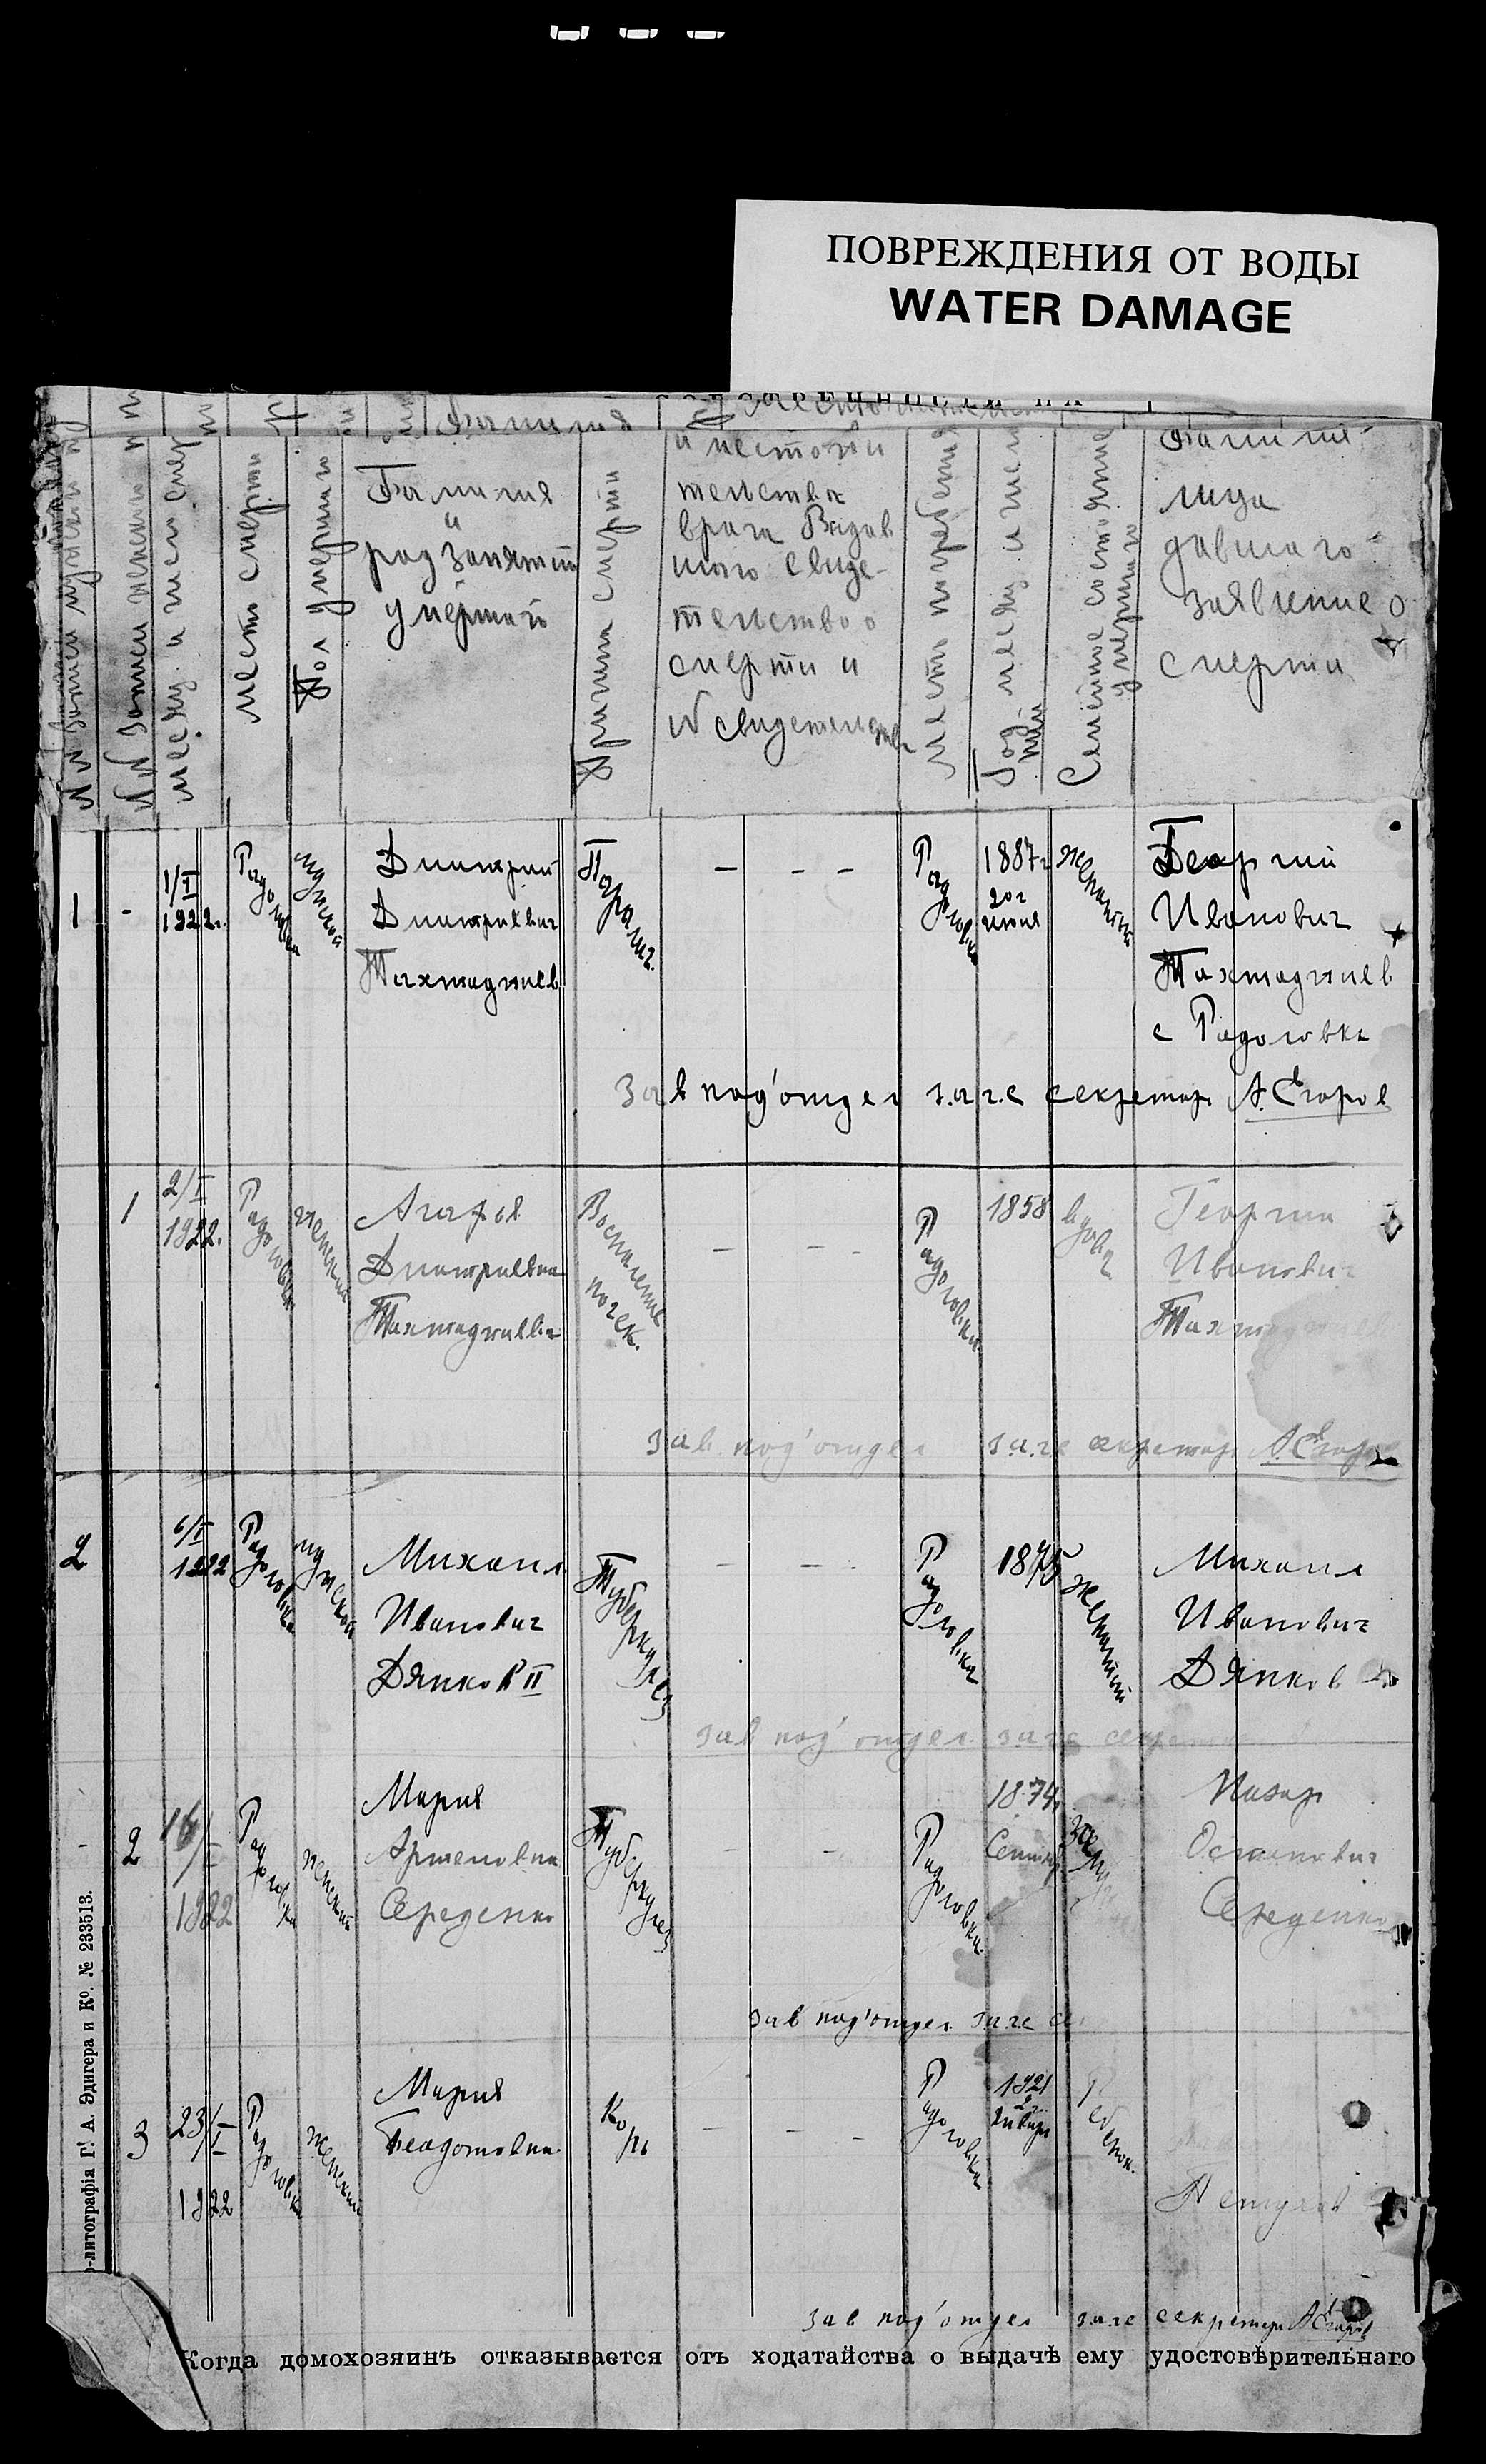 ПОВРЕЖДЕНИЯ ОТ ВОДЫ
WATER DAMAGE
Фамилия
№№ записи мужского п
№№ записи женского п
месяц и число смер
место смерти
Пол умершаго
Фамилия
и
род занятий
умершаго
Причина смерти
и место жи
тельства
врача Выдав
шаго Свиде-
тельство о
смерти и
№ свидетельства
место погребения
Год месяц и число
Семейное состояние
умершаго
Фамилия
лица
давшаго
заявление о
смерти
1
-
1/I
1922г.
Радоловка
мужской
Дмитрий
Дмитриевич
Тахтаджиев
Паралич.
— — —
Радоловка
1887г
20г
июня
женатый
Георгий
Иванович
Тахтаджиев
с Радоловка
Зав под'отдел загс секретарь А. Егоров
1
2/I
1922.
Радоловка
женский
Агафья
Дмитриевна
Тахтаджиева
Воспаление
почек.
— — —
Радоловка
1858
вдова
Георгий
Иванович
зав под'отдел загс секретарь А. Егоров
2
6/I
1922
Радоловка
мужской
Михаил
Иванович
Дянков II
Туберкулез
— —
Радоловка
1875
женатый
Михаил
Иванович
Дянков
зав под' отдел загс
2
16/I
1922
Радоловка
женский
Мария
Артемовна
Середенко
Туберкулез
— —
Радоловка
1874
Назар
Остапович
Середенко
зав под'отдел загс
3
23/I
1922
Радоловка
женский
Мария
Феодотовна
Корь
— — —
Радоловка
1921
2
Января
Ребенок.
зав под'отдел загс секретарь А Егоров
о-литографія Г. А. Эдигера и Ко. № 233513.
Когда домохозяинъ отказывается отъ ходатайства о выдачѣ ему удостовѣрительнаго